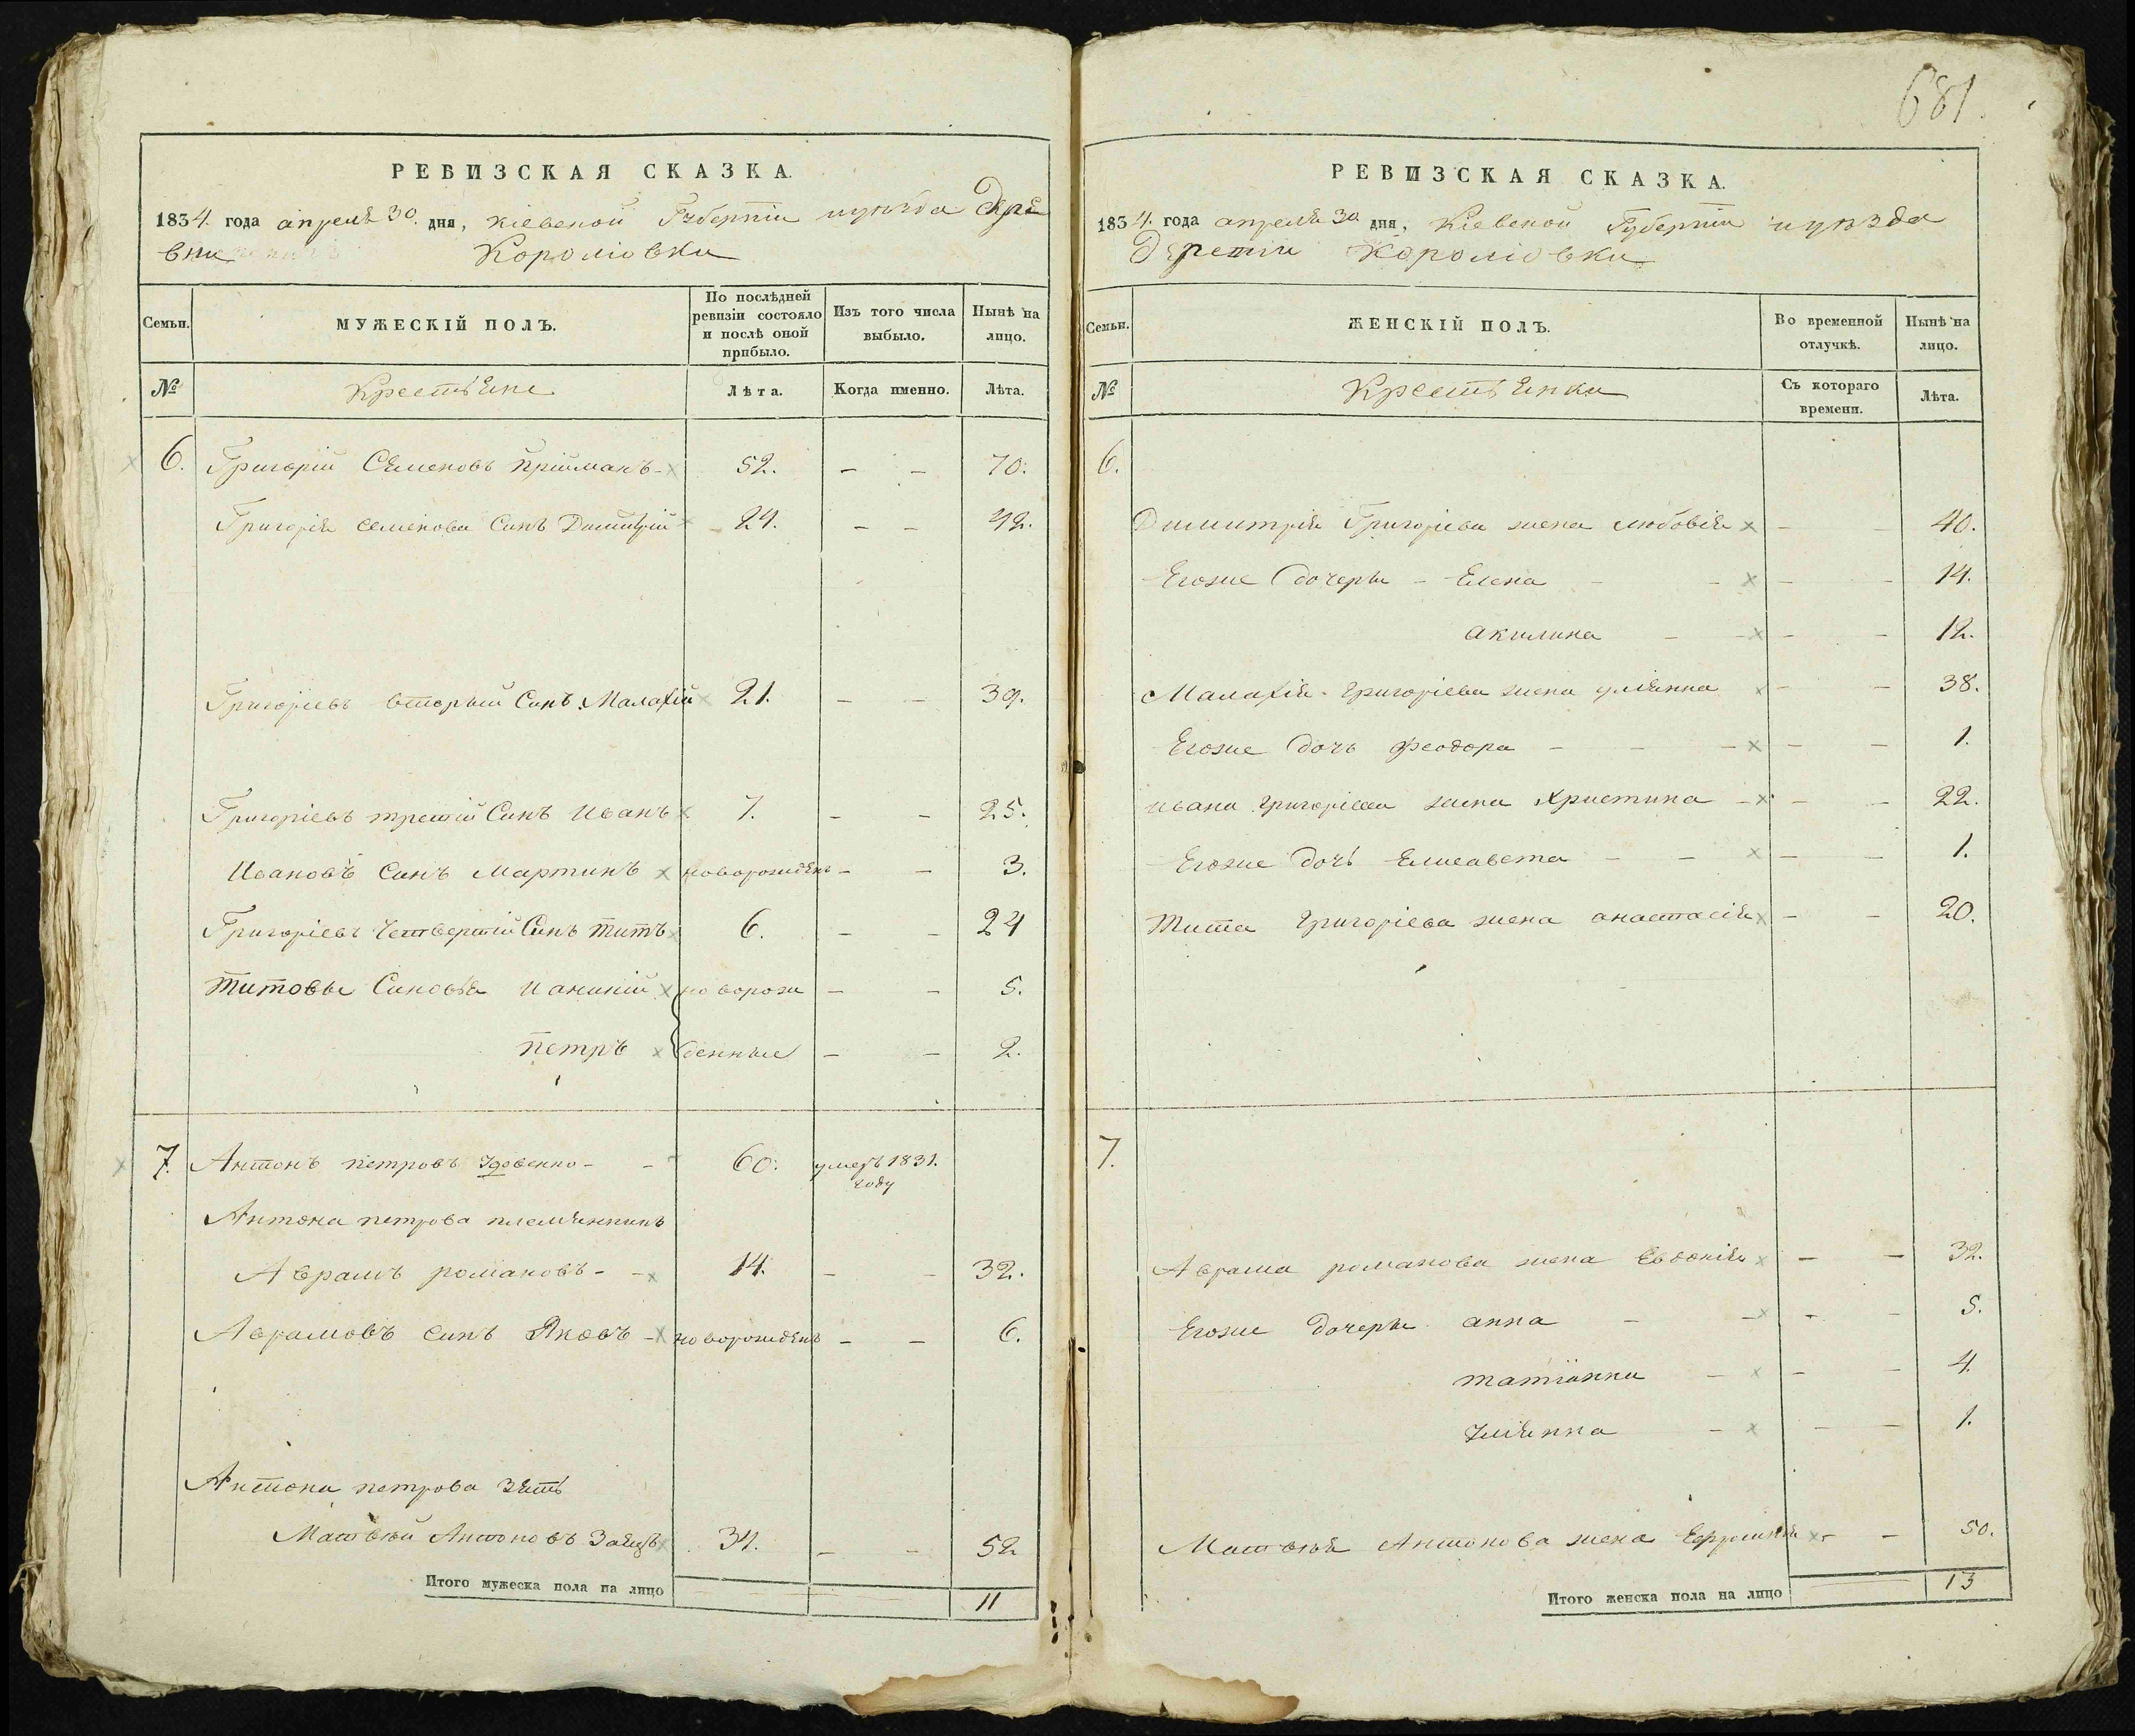 РЕВИЗСКАЯ СКАЗКА.
1834. года апреля 30. дня, Кіевской Губерніи и уѣзда Дере
вни Короліовки
Семьи.
МУЖЕСКІЙ ПОЛЪ.
По послѣдней ревизіи состояло и послѣ оной прибыло.
Изъ того числа выбыло.
Нынѣ на лицо.
№
Крестьяне
Лѣта.
Когда именно.
Лѣта.
6. Григорій Семеновъ Прійманъ - 52. - - 70.
Григорія Семенова Синъ Димитрій - 24. - - 42.
Григоріевъ вторый Синъ Малафій 21. - - 39.
Григоріевъ третій Синъ Иванъ 7. - - 25.
Ивановъ Синъ Мартинъ новорожденъ - - 3.
Григоріевъ Четвертій Синъ Титъ 6. - - 24
Титовы Синовья Иакиній новорож - - 5.
петръ денные - - 2.
7. Антонъ петровъ Удовенко - - 60. умеръ 1831.
году
Антона петрова племянникъ
Аврамъ романовъ - - 14. - - 32.
Аврамовъ синъ Яковъ - новорожденъ - - 6.
Антона петрова зять
Матвѣй Антоновъ Заяцъ 34. - - 52
Итого мужеска пола на лицо 11
681.
РЕВИЗСКАЯ СКАЗКА.
1834. года апреля 30 дня, Кіевской Губерніи и уѣзда
Деревни Короліовки
Семьи.
ЖЕНСКІЙ ПОЛЪ.
Во временной отлучкѣ.
Нынѣ на лицо.
№
Крестьянки
Съ котораго времени.
Лѣта.
6.
Димитрія Григоріева жена любовія - - 40.
Егоже дочеры - Елена - - - - 14.
акилина - - - - 12.
Малафія Григоріева жена улянна - - 38.
Егоже дочь феодора - - - - - 1.
ивана григоріева жена Христина - - - 22.
Егоже дочь Елисавета - - - - 1.
Тита григоріева жена анастасія - - 20.
7.
Аврама романова жена Евдокія - - 32.
Егоже дочеры анна - - - - 5.
татіанна - - - 4.
Уліянна - - - 1.
Матвѣя Антонова жена - - 50.
Итого женска пола на лицо 13